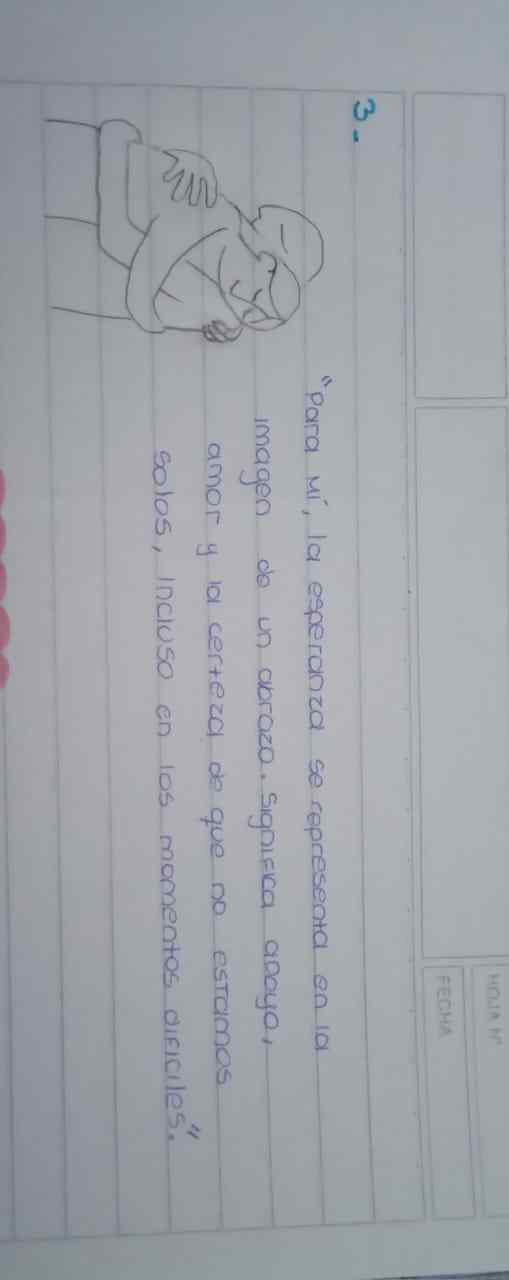 HOJA N°
FECHA
3.-
"Para mí, la esperanza se representa en la
imagen de un abrazo. Significa apoyo,
amor y la certeza de que no estamos
solos, incluso en los momentos dificiles."